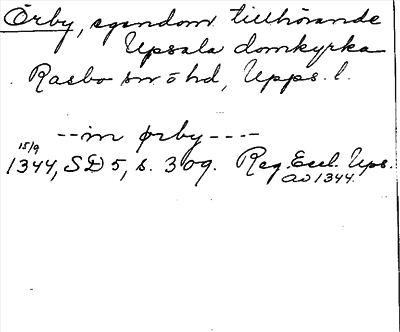 Örby, egendom tillhörande
Upsala domkyrka
Rasbo sn o hd, Upps. l.
--- in ørby ----
15/9
1344, SD 5, s. 309. Reg. Eccl. Ups.
av 1344.